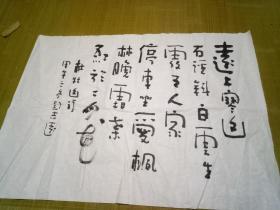 遠上寒山
石徑斜白雲生
處有人家
停車坐愛楓
林晚霜葉
紅於二月花
杜牧山行詩
甲午